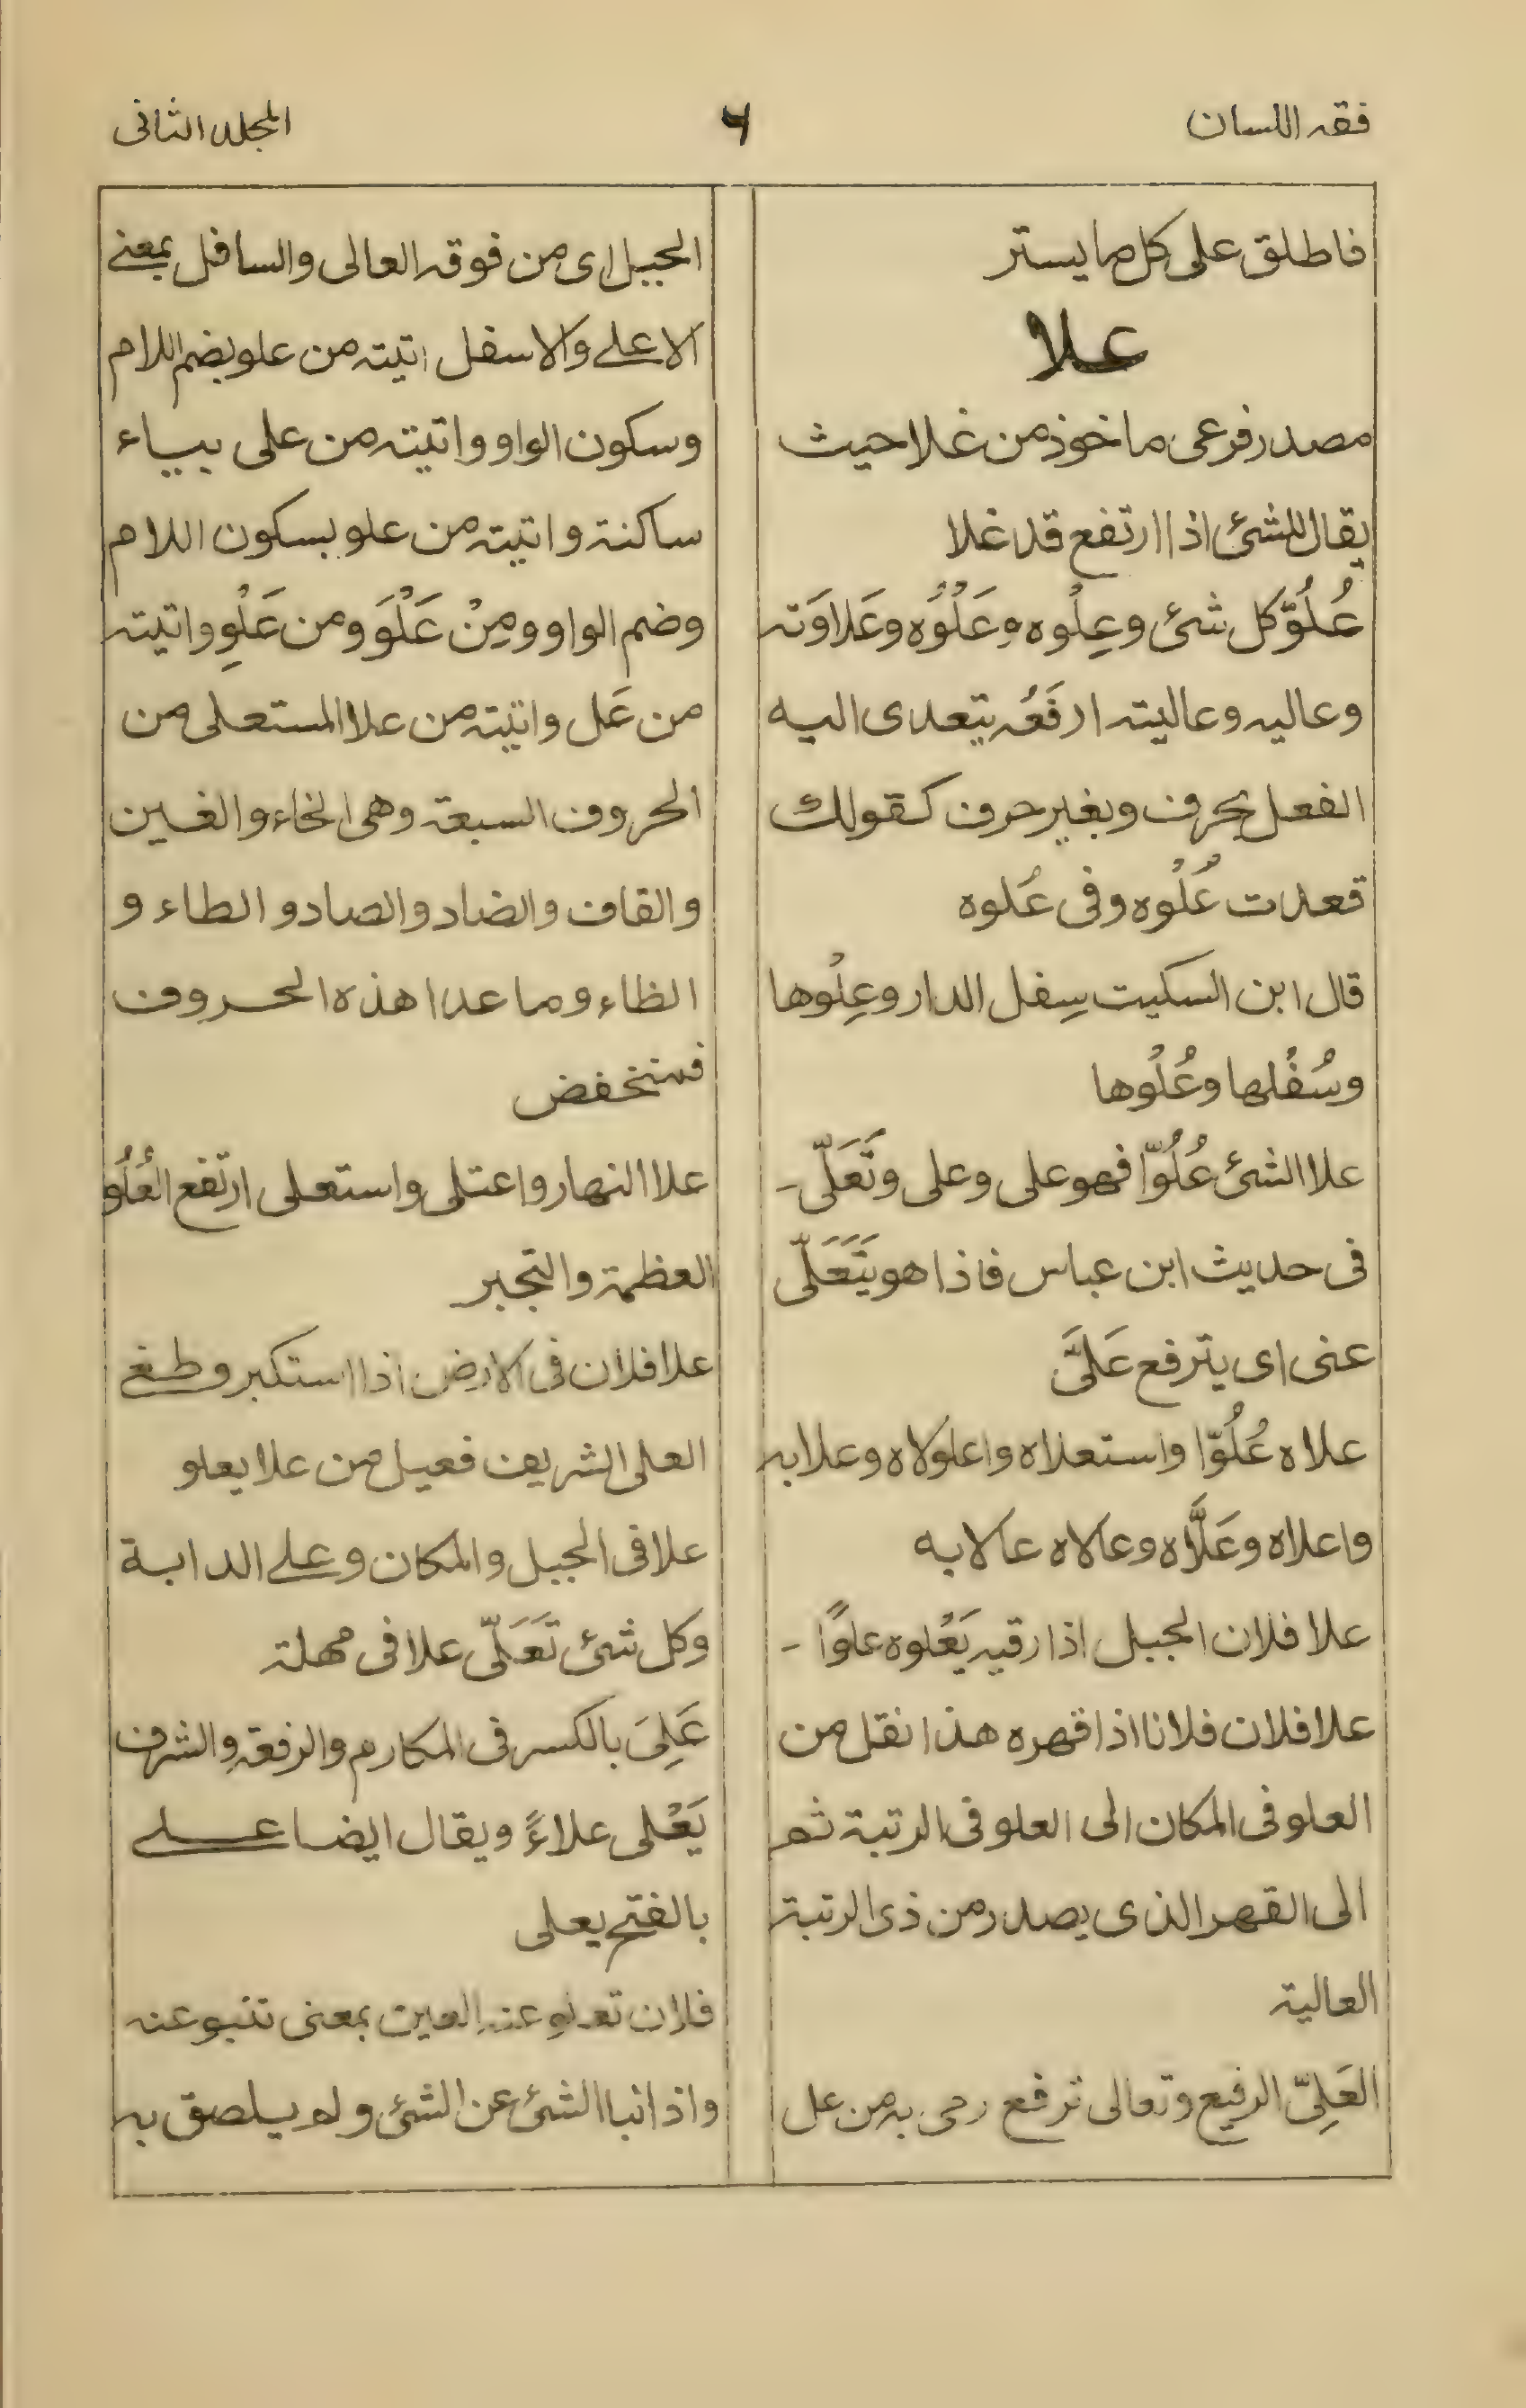 فقہ اللسان
۶
المجلد الثانی
فاطلق علی کل ما یستر
علا
مصدر فرعی ماخوذ من غلا حیث
یقال للشئ اذا ارتفع قد غلا
عُلُوّ کل شئ وعِلْوہ وعَلْوُہ وعَلاوَتہ
وعالیہ وعالیتہ ارفَعُہ یتعدی الیہ
الفعل بحرف وبغیر حرف کقولک
قعدت عُلْوہ وفی عُلوہ
قال ابن السکیت سِفل الدار وعِلْوها
وسُفْلها وعُلْوها
علا الشئ عُلُوّا فهو علی وعلی وتَعَلّی۔
فی حدیث ابن عباس فاذا هو یَتَعَلّی
عنی ای یترفع عَلَیَّ
علاہ عُلُوّا واستعلاہ واعلولاہ وعلا بہ
واعلاہ وعَلَّاہ وعالاہ عالا بہ
علا فلان الجبل اذا رقیہ یَعْلوہ علوًا ۔
علا فلان فلانا اذا قهرہ هذا نقل من
العلو فی المکان الی العلو فی الرتبة ثم
الی القهر الذی یصدر من ذی الرتبة
العالیة
العَلِیّ الرفیع وتعالی ترفع رمی بہ من عل
الجبل ای من فوقہ العالی والسافل بمعنے
الاعلے والاسفل اتیتہ من علو بضم اللام
وسکون الواو واتیتہ من علی بیاء
ساکنة واتیتہ من علو بسکون اللام
وضم الواو ومِنْ عَلْوَ ومن عَلْوِ واتیتہ
من عَل واتیتہ من علا المستعلی من
الحروف السبعة وهی الخاء والغین
والقاف والضاد والصاد والطاء و
الظاء وما عدا هذہ الحروف
فمنخفض
علا النهار واعتلی واستعلی ارتفع العُلُو
العظمة والتجبر
علا فلان فی الارض اذا استکبر وطغے
العلی الشریف فعیل من علا یعلو
علا فی الجبل والمکان وعلے الدابة
وکل شئ تَعَلّی علا فی مهلة
عَلِیَ بالکسر فی المکارم والرفعة والشرف
یَعْلی علاءً ویقال ایضا علے
بالفتح یعلی
فلان تعلو عنہ العین بمعنی تنبو عنہ
واذا نبا الشئ عن الشئ ولم یلصق بہ